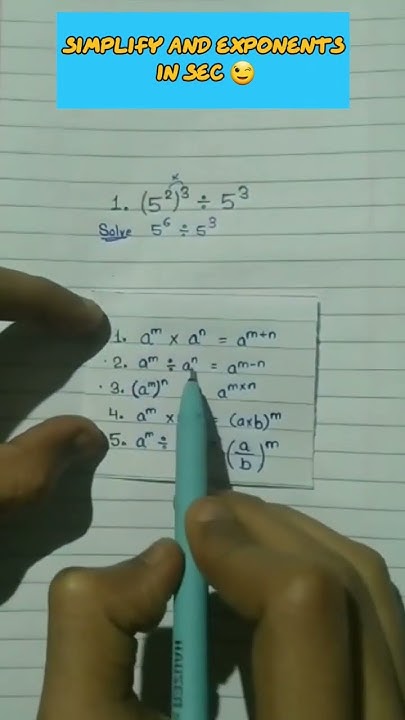 SIMPLIFY AND EXPONENTS
IN SEC 😉
x
1. (5²)³ ÷ 5³
Solve 5⁶ ÷ 5³
1. aᵐ x aⁿ = aᵐ⁺ⁿ
2. aᵐ ÷ aⁿ = aᵐ⁻ⁿ
3. (aᵐ)ⁿ aᵐˣⁿ
4. aᵐ x = (axb)ᵐ
5. aᵐ ÷ (a/b)ᵐ